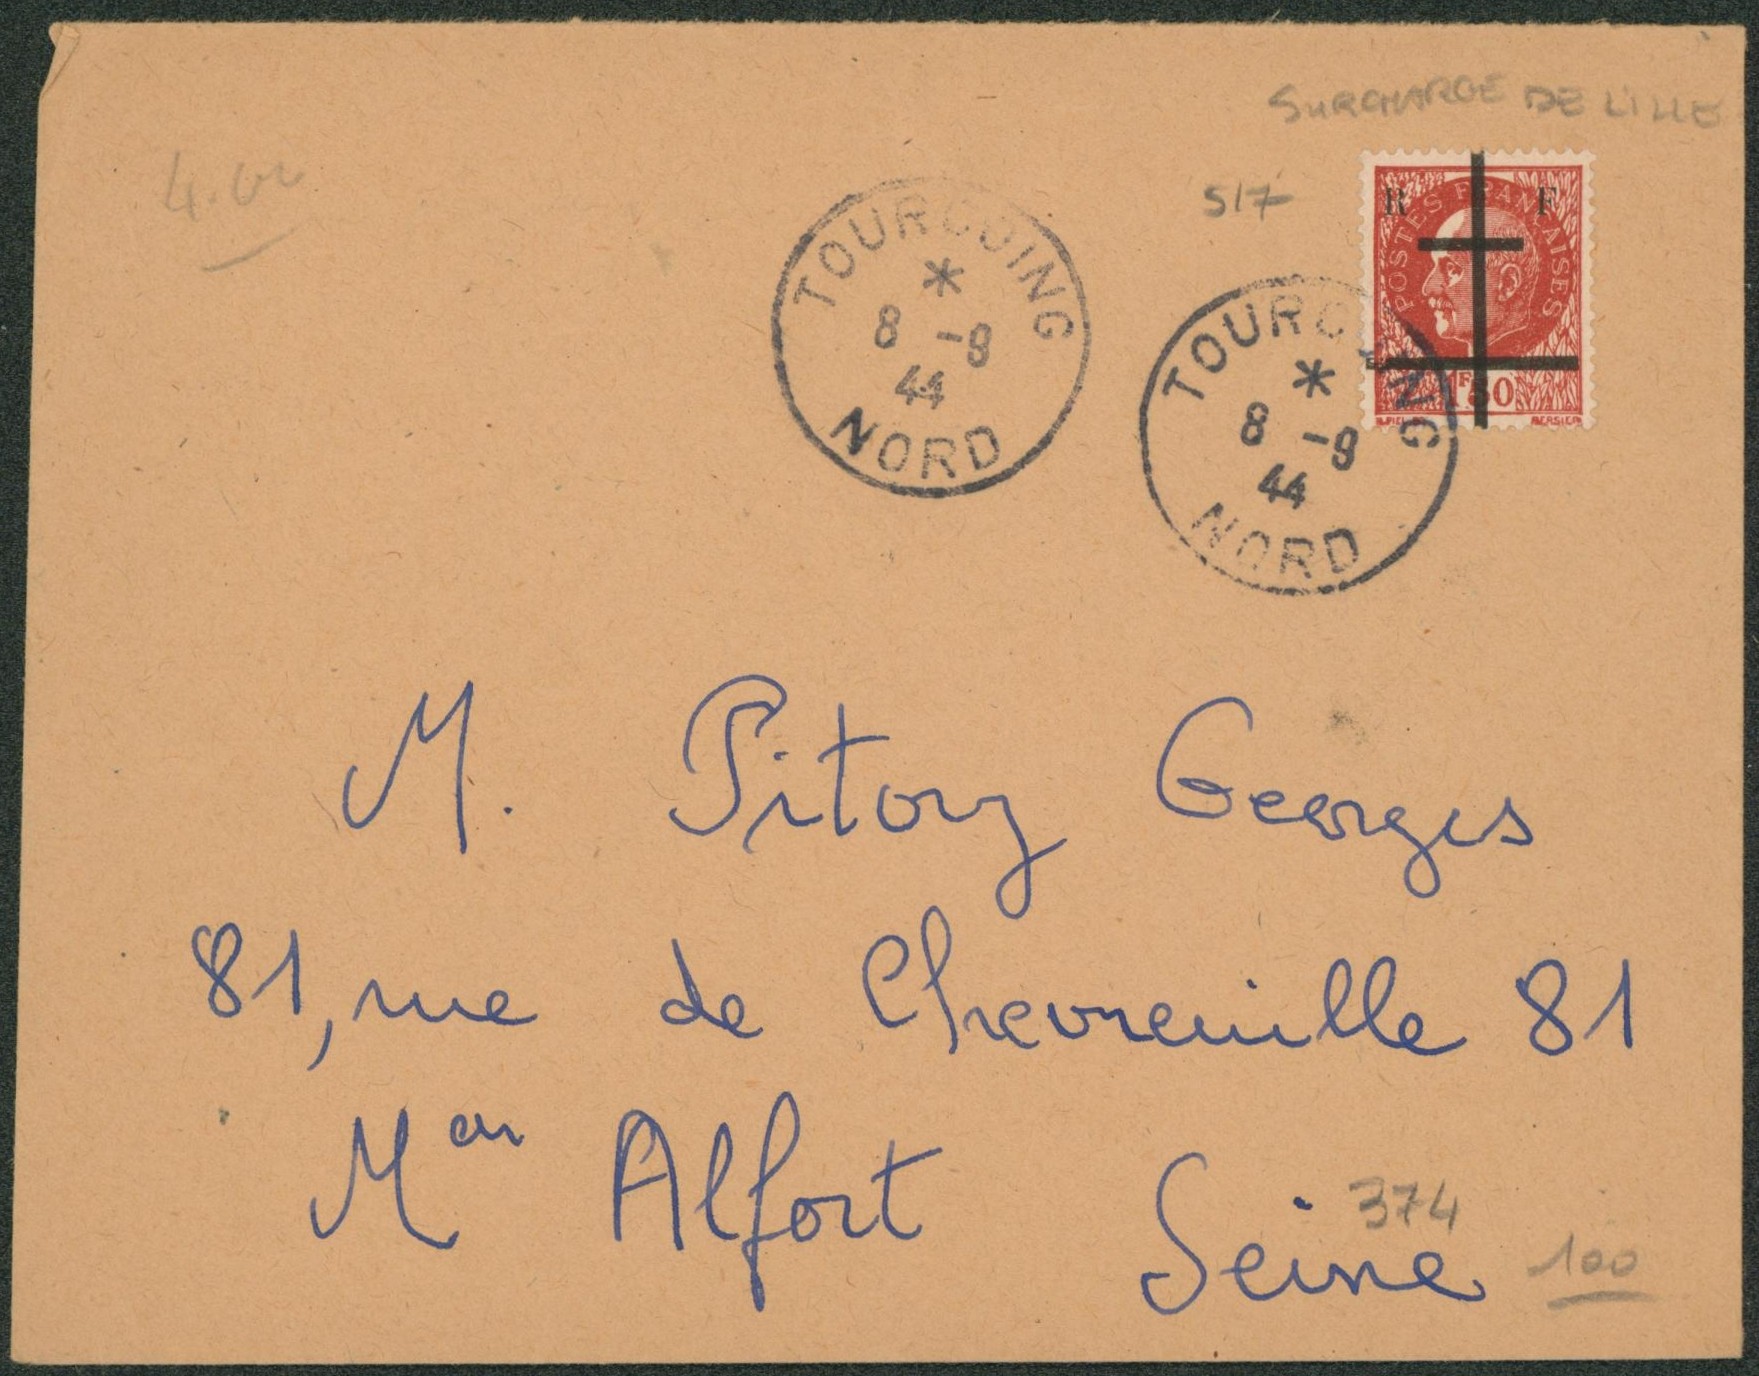 SURCHARGE DE LILLE
517
R F
POSTES FRANÇAISES
1F50
BERSIER
TOURCOING
*
8 -9
44
NORD
TOURCOING
*
8 -9
44
NORD
M. Pitory Georges
81, rue de Chevreuille 81
Mon Alfort
Seine
374
100